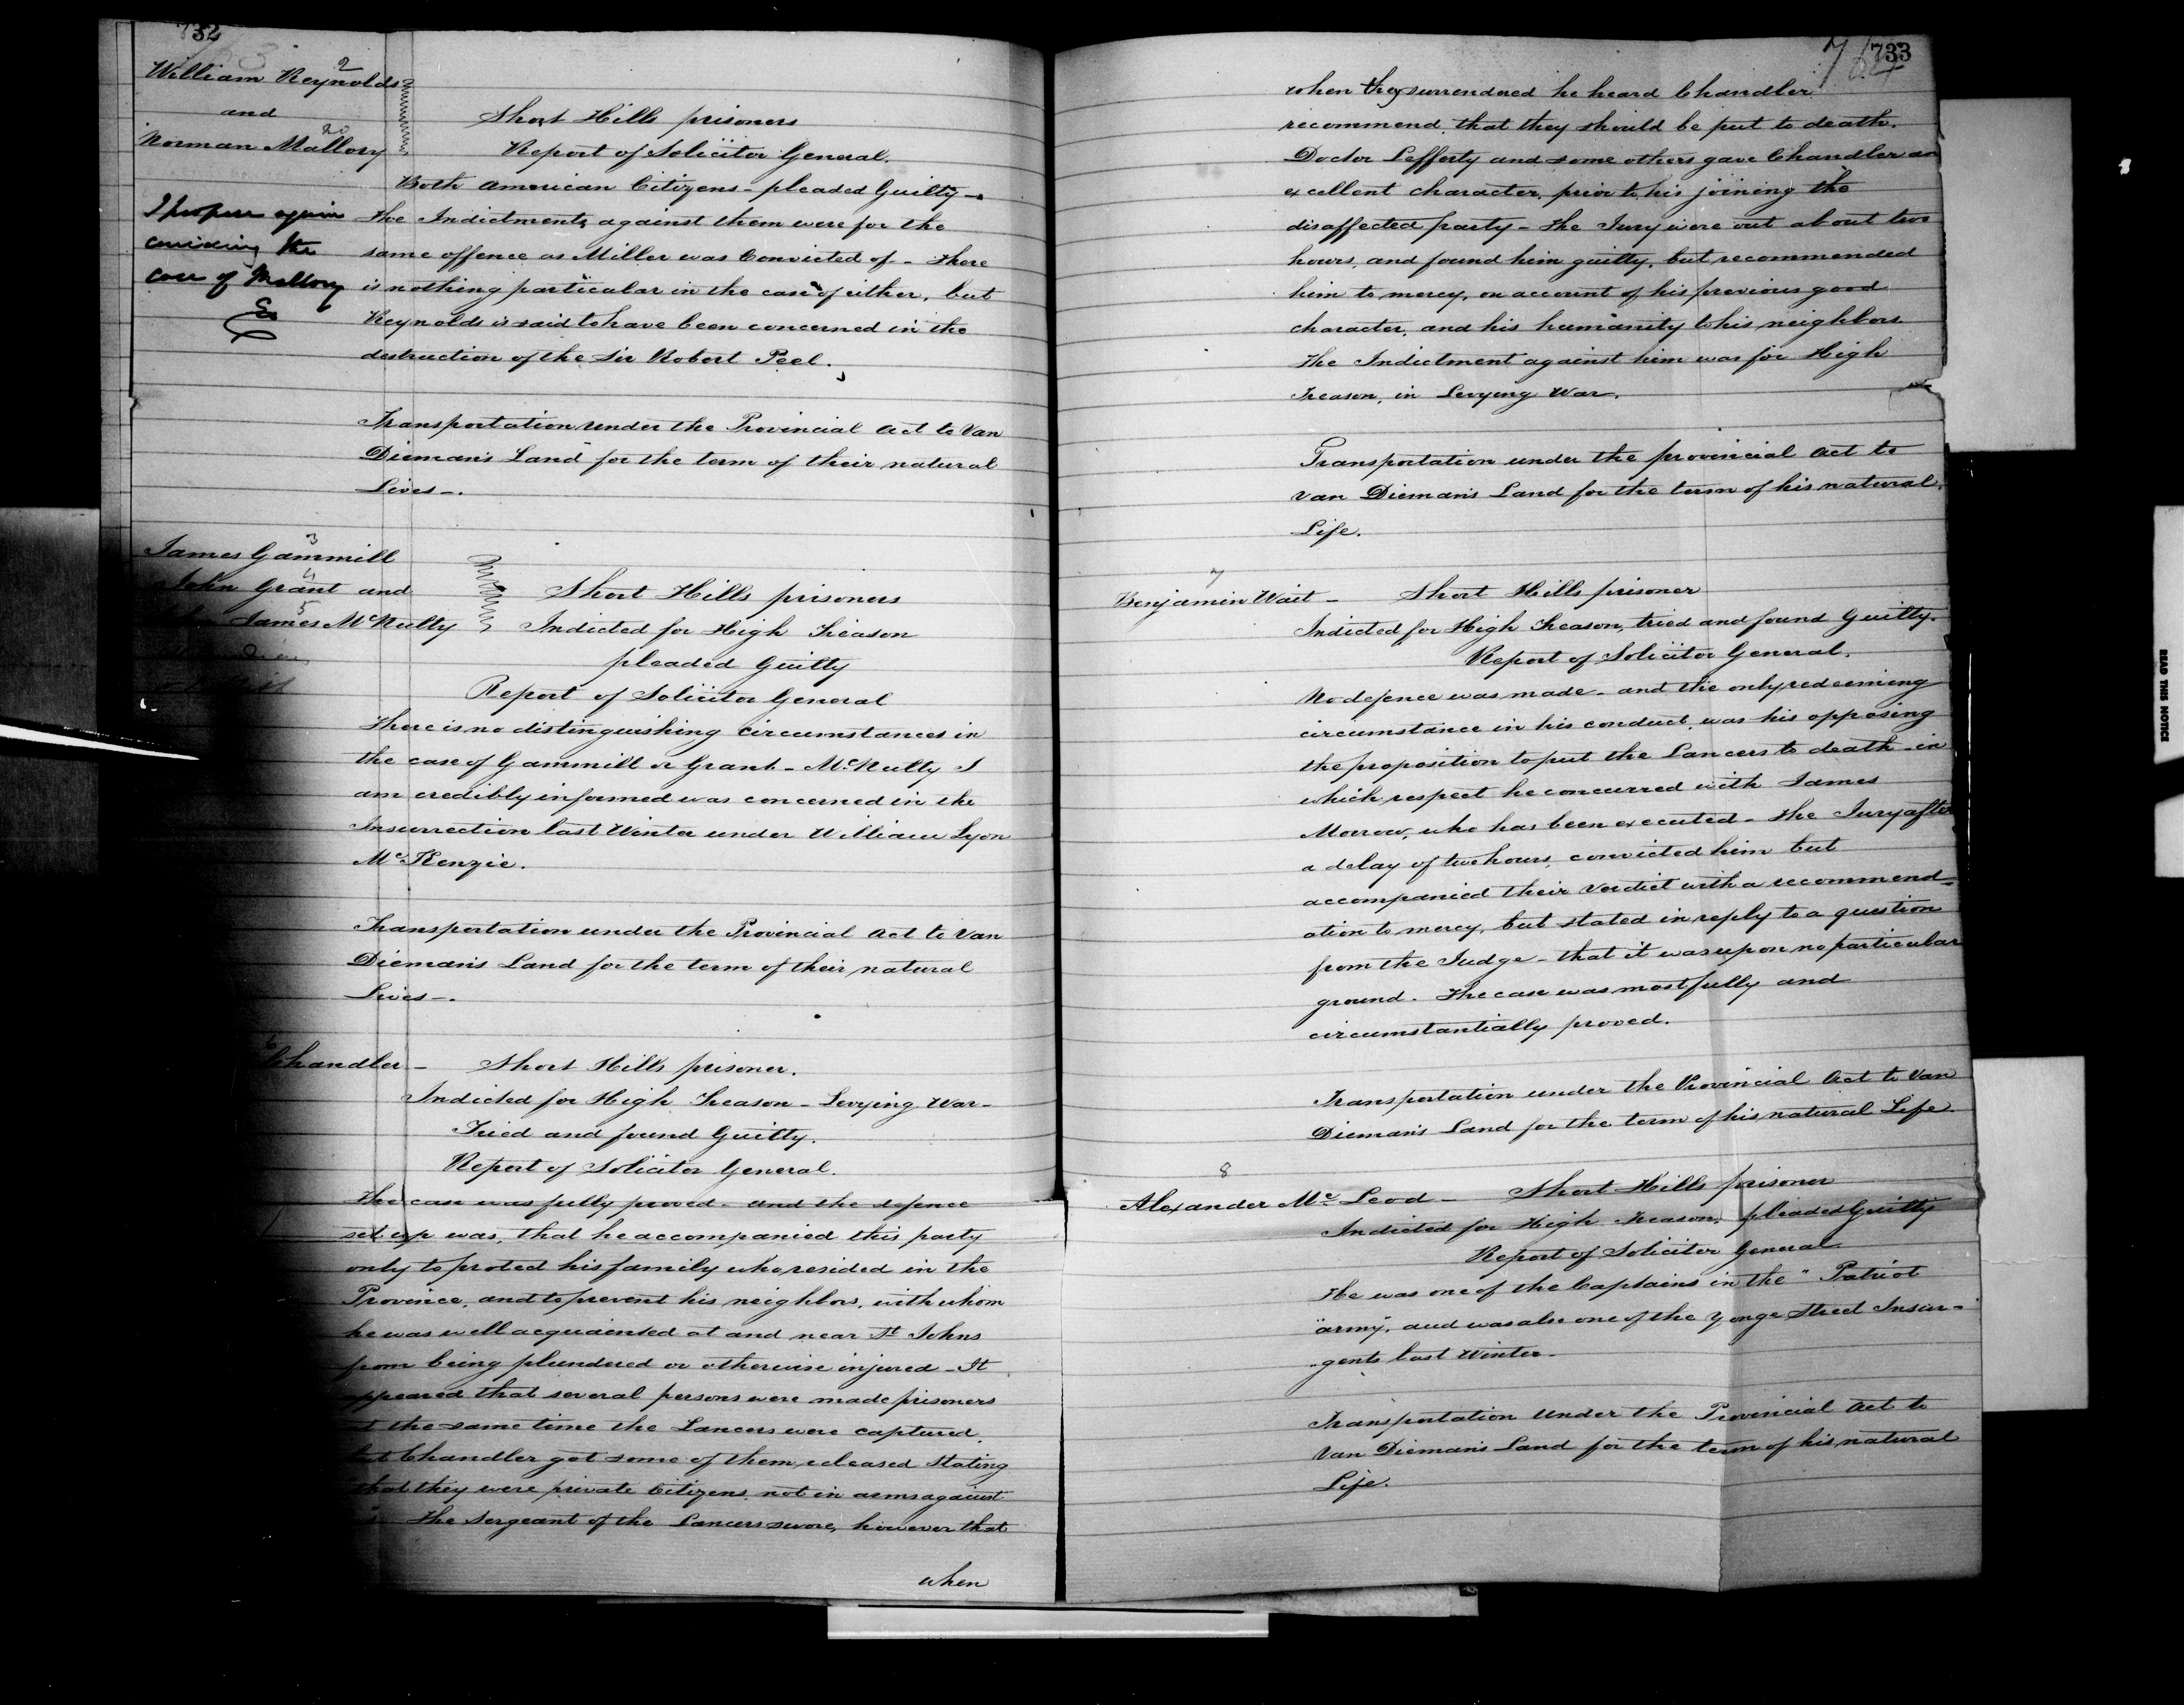 732
William Reynolds 2
and
Norman Mallory 20
Short Hills prisoners
Report of Solicitor General.
Both American Citizens - pleaded Guilty -
I propose again
considering the
case of Mallory
The Indictments against them were for the
same offence as Miller was Convicted of - There
is nothing particular in the case of either, but
Reynolds is said to have been concerned in the
destruction of the Sir Robert Peel.
Transportation under the Provincial Act to Van
Dieman's Land for the term of their natural
Lives -.
James Gammill 3
John Grant and 4
James McNulty 5
Short Hills prisoners
Indicted for High Treason
pleaded Guilty
Report of Solicitor General
There is no distinguishing circumstances in
the case of Gammill or Grant - McNulty I
am credibly informed was concerned in the
Insurrection last Winter under William Lyon
McKenzie.
Transportation under the Provincial Act to Van
Dieman's Land for the term of their natural
Lives -.
6
Chandler - Short Hills prisoner.
Indicted for High Treason - Levying War -
Tried and found Guilty.
Report of Solicitor General.
The case was fully proved - and the defence
set up was, that he accompanied this party
only to protect his family who resided in the
Province, and to prevent his neighbors, with whom
he was well acquainted at and near St Johns
from being plundered or otherwise injured - It
appeared that several persons were made prisoners
at the same time the Lancers were captured,
but Chandler got some of them released stating
that they were private Citizens not in arms against
The Sergeant of the Lancers swore, however that
when
733
when they surrendered he heard Chandler
recommend that they should be put to death.
Doctor Lefferty and some others gave Chandler an
excellent character, prior to his joining the
disaffected party - The Jury were out about two
hours, and found him guilty, but recommended
him to mercy, on account of his previous good
character, and his humanity to his neighbors
The Indictment against him was for High
Treason, in Levying War.
Transportation under the provincial Act to
Van Dieman's Land for the term of his natural
Life.
7
Benjamin Wait - Short Hills prisoner
Indicted for High Treason, tried and found Guilty.
Report of Solicitor General.
No defence was made - and the only redeeming
circumstance in his conduct was his opposing
the proposition to put the Lancers to death - in
which respect he concurred with James
Morrow, who has been executed - The Jury after
a delay of two hours, convicted him but
accompanied their Verdict with a recommend=
ation to mercy, but stated in reply to a question
from the Judge - that it was upon no particular
ground. The case was most fully and
circumstantially proved.
Transportation under the Provincial Act to Van
Dieman's Land for the term of his natural Life.
8
Alexander McLeod - Short Hills prisoner
Indicted for High Treason, pleaded Guilty
Report of Solicitor General
He was one of the Captains in the "Patriot
"army", and was also one of the Yonge Street Insur=
gents last Winter -
Transportation under the Provincial Act to
Van Dieman's Land for the term of his natural
Life.
READ THIS NOTICE